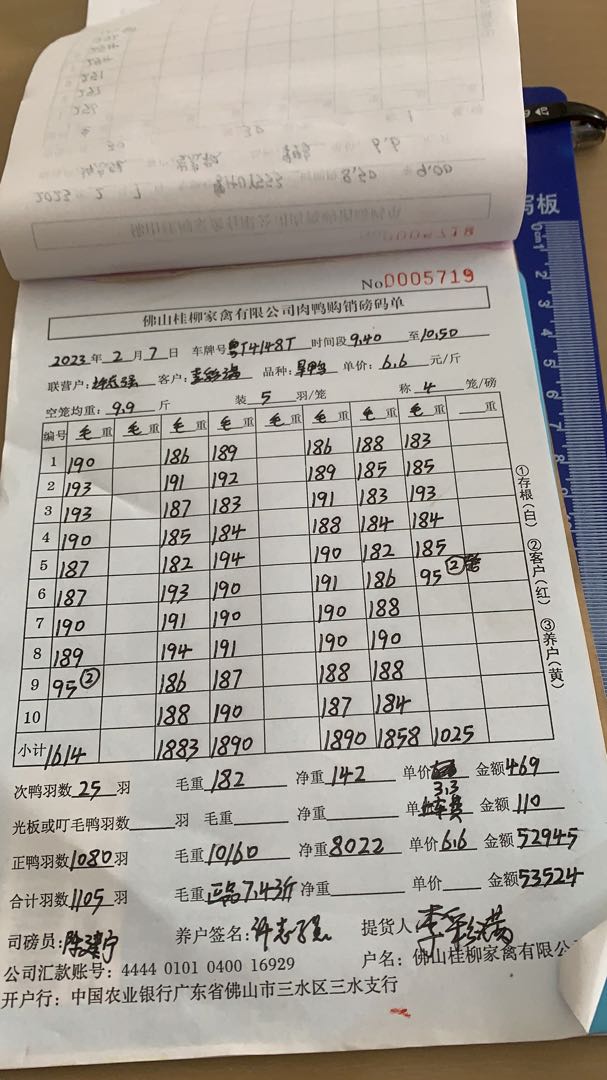 No 0005719
佛山桂柳家禽有限公司肉鸭购销磅码单
2023年2月7日 车牌号粤T4148T 时间段9.40至10.50
联营户: 许志强 客户: 李彩满 品种: 旱鸭 单价: 6.6 元/斤
空笼均重: 9.9 斤 装 5 羽/笼 称 4 笼/磅
编号 毛重 毛重 毛重 毛重 毛重 毛重 毛重 毛重 重
1 190 186 189 186 188 183
2 193 191 192 189 185 185
3 193 187 183 191 183 193
4 190 185 184 188 184 184
5 187 182 194 190 182 185
6 187 193 190 191 186 95②
7 190 191 190 190 188
8 189 194 191 190 190
9 95② 186 187 188 188
10 188 190 187 184
小计 1614 1883 1890 1890 1858 1025
次鸭羽数 25 羽 毛重 182 净重 142 单价 3.3 金额 469
光板或叮毛鸭羽数 羽 毛重 净重 单 车费 金额 110
正鸭羽数 1080 羽 毛重 10160 净重 8022 单价 6.6 金额 52945
合计羽数 1105 羽 毛重 正品7.43斤 净重 单价 金额 53524
司磅员: 陈建宁 养户签名: 许志强 提货人 李彩满
公司汇款账号: 4444 0101 0400 16929 户名: 佛山桂柳家禽有限公
开户行: 中国农业银行广东省佛山市三水区三水支行
①存根(白) ②客户(红) ③养户(黄)
写板
0cm1 2 3 4 5 6 7 8 9 10